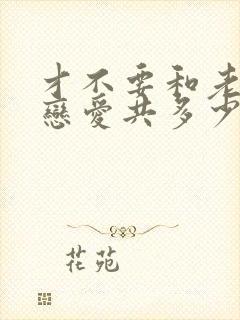 才不要和老
戀愛共多少
花苑